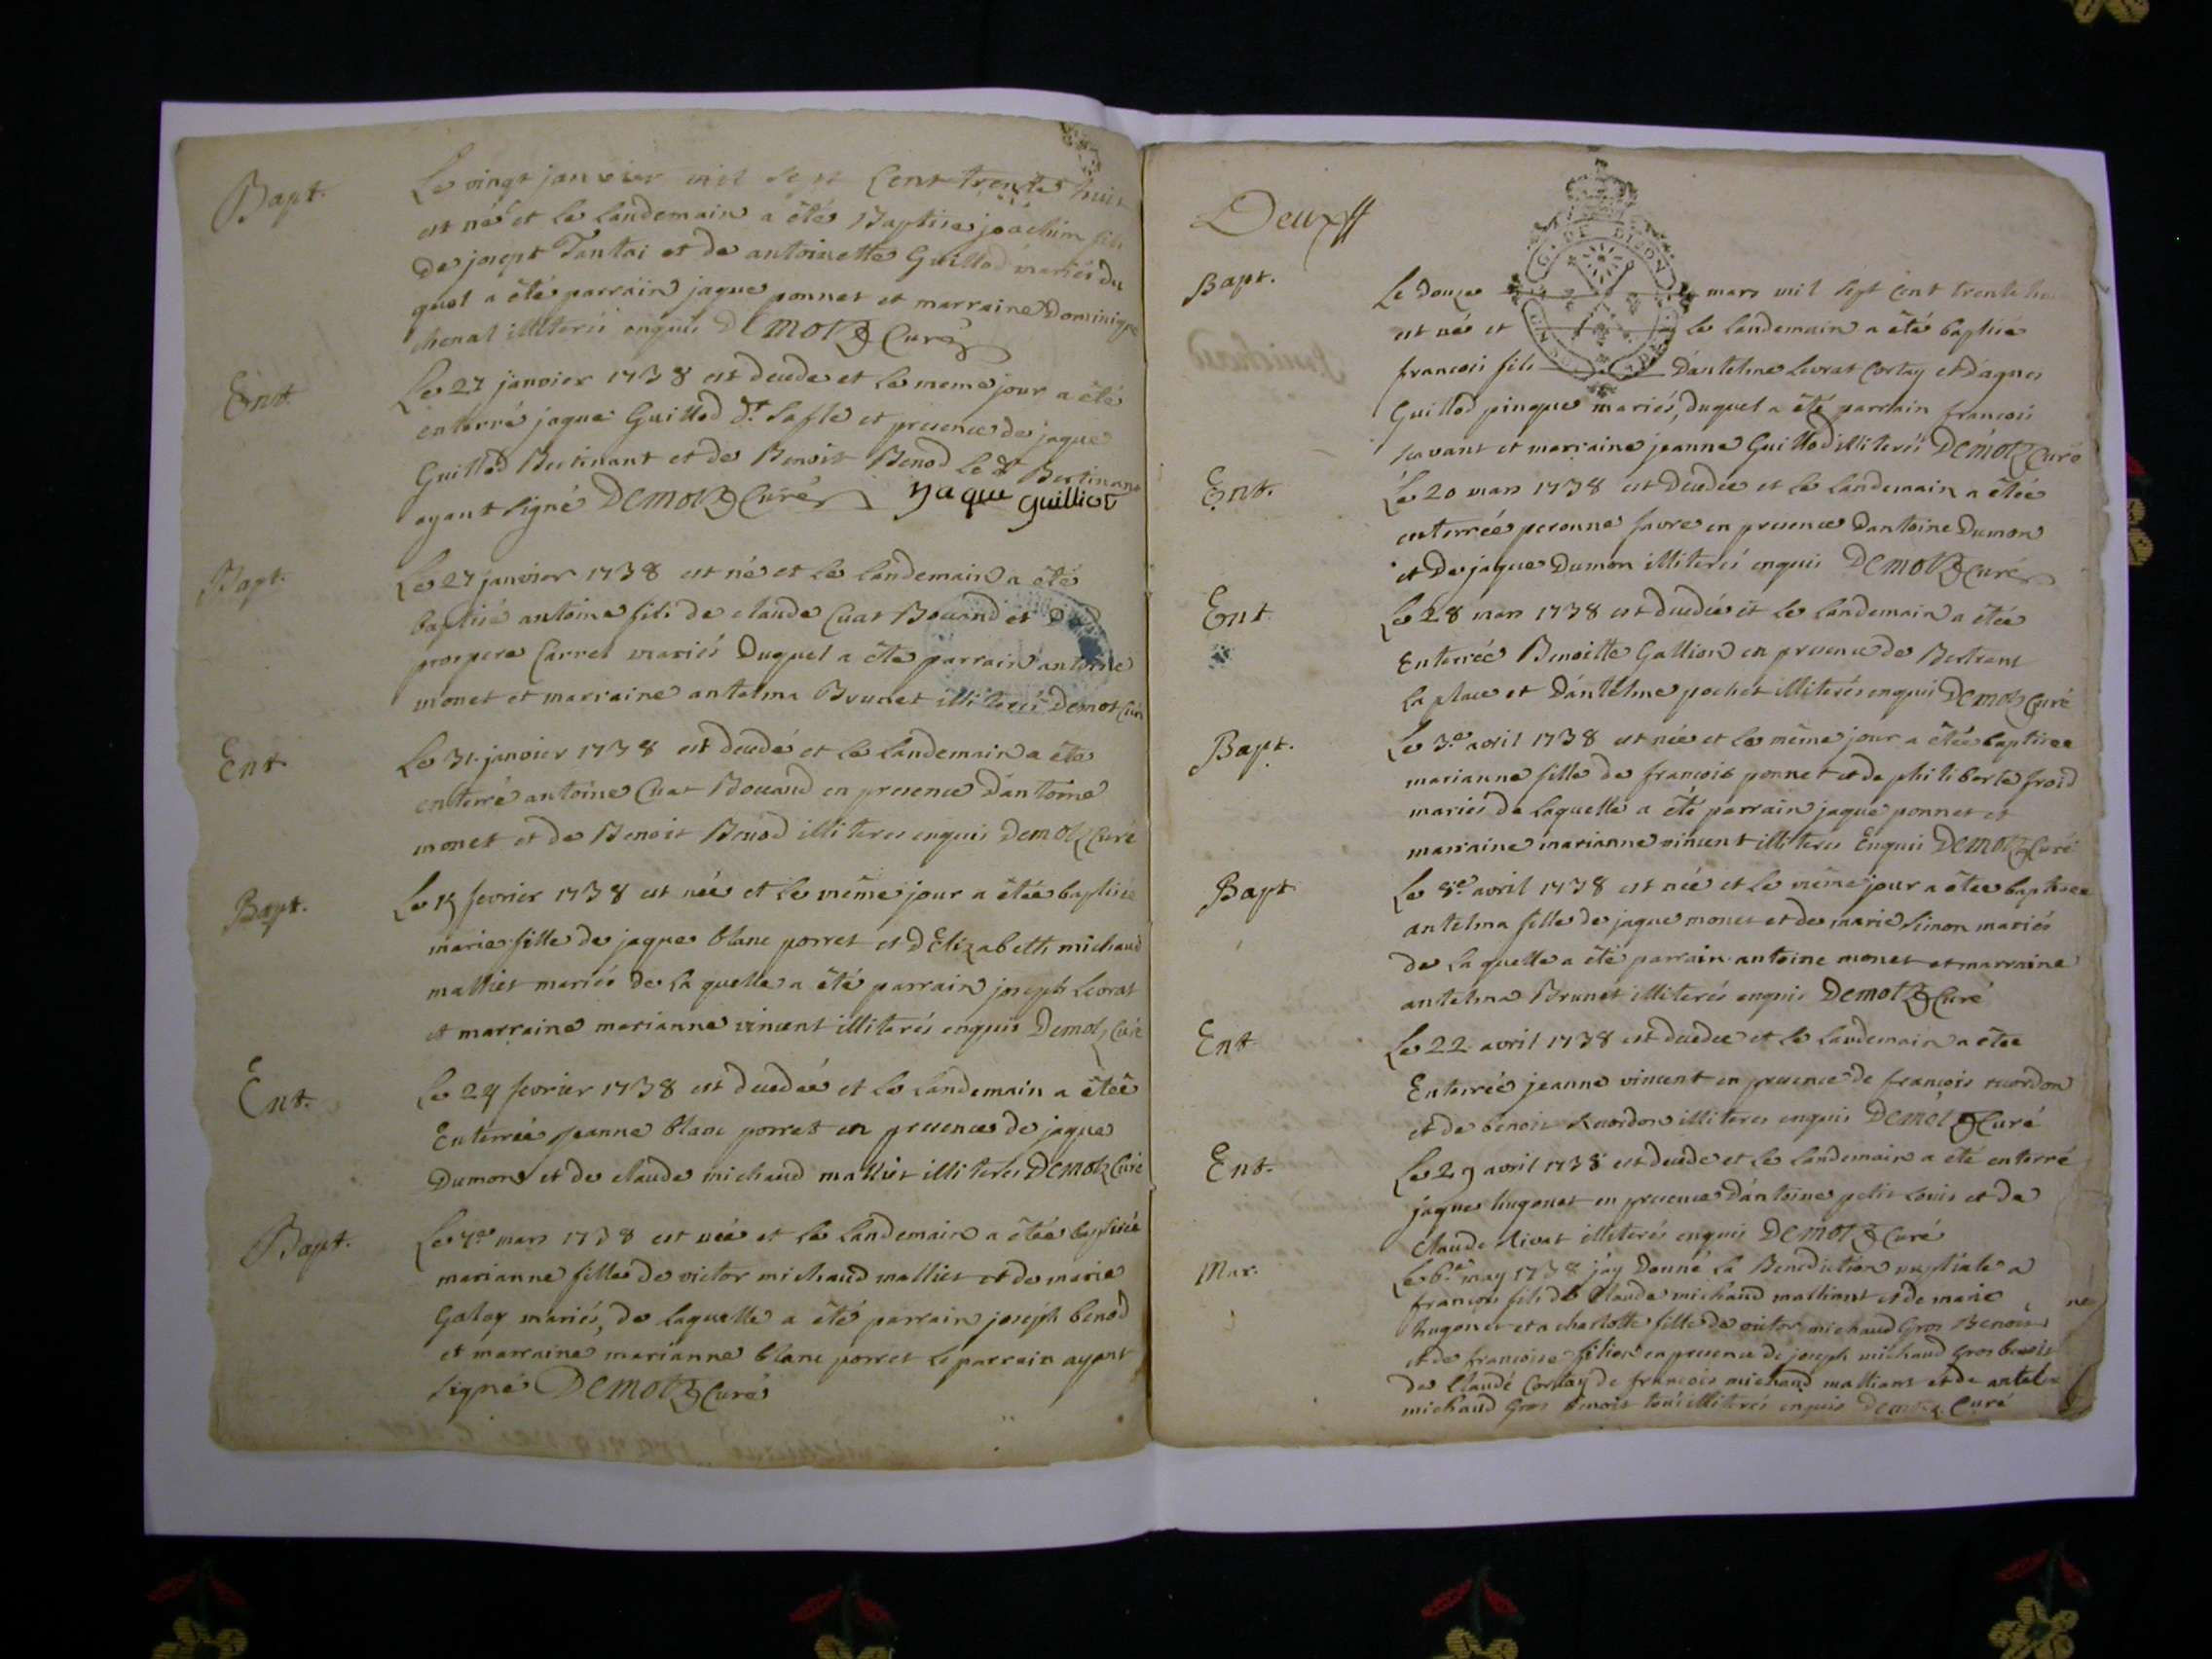 Bapt.
Le vingt janvier mil sept Cent trente huit
est né et le landemain a été Baptise joachim fils
De josept Tantai et de antoinette Guillod mariés du
quel a été parrain jaque ponnet et marraine Dominique
chenal illiterés enquis DEMOTZ Curé
Ent.
Le 27 janvier 1738 est decede et le meme jour a été
enterré jaque Guillod dt. Lafle et presence de jaque
Guillod Bertinant et de Benoit Benod le dt Bertinant
ayant signé DEMOTZ Curé jaque guilliot
Bapt.
Le 27 janvier 1738 est né et le landemain a été
baptisé antoine fils de claude Cuat Bouand et
prospere Carrel mariés Duquel a été parrain antoine
monet et marraine antelma Brunet illiterés Demotz Curé
Ent
Le 31. janvier 1738 est decedé et le landemain a été
enterré antoine Cuat Bouand en presence Dantoine
monet et de Benoit Benod illiteres enquis Demotz Curé
Bapt.
Le fevrier 1738 est née et le même jour a étée baptisée
marie fille de jaque blanc porret et DElizabeth michaud
malliet mariés de la quelle a été parrain joseph Levrat
et marraine marianne vincent illiterés enquis Demotz Curé
Ent.
Le 24 fevrier 1738 est decedée et le landemain a étée
Enterrée jeanne blanc porret en presence de jaque
Dumon et de claude michaud malliet illiteres DEMOTZ Curé
Bapt.
Le mars 1738 est née et le landemain a étée baptisée
marianne fille de victor michaud malliet et de marie
Galay mariés, de laquelle a été parrain joseph benod
et marraine marianne blanc porret le parrain ayant
signé DEMOTZ Curé
Deux
G. DE DIJON
Bapt.
Le douze mars mil sept Cent trente
est né et le landemain a été baptisé
francois fils Dantelme Levrat Cortay et dagnes
Guillod pinque mariés, duquel a été parrain francois
savant et marraine jeanne Guillod illiterés DEMOTZ Curé
Ent.
Le 20 mars 1738 est decedée et le landemain a étée
enterrée peronne favre en presence Dantoine Dumon
et De jaque Dumon illiterés enquis DEMOTZ Curé
Ent
Le 28 mars 1738 est decedée et le landemain a étée
Enterrée Benoitte Gallion en presence de Bertrant
la place et Dantelme pochet illiterés enquis DEMOTZ Curé
Bapt.
Le 3e avril 1738 est née et le même jour a étée baptisee
marianne fille de francois ponnet et de philiberte froid
mariés de laquelle a été parrain jaque ponnet et
marraine marianne vincent illiteres Enquis DEMOTZ Curé
Bapt
Le 8e avril 1738 est née et le même jour a étee baptisee
antelma fille de jaque monet et de marie Simon mariés
de la quelle a été parrain antoine monet et marraine
antelma Brunet illiterés enquis DEMOTZ Curé
Ent
Le 22 avril 1738 est decedee et le landemain a étee
Enterrée jeanne vincent en presence de francois
et de benoit illiteres enquis DEMOTZ Curé
Ent.
Le 29 avril 1738 est decede et le landemain a été enterré
jaque hugonet en presence Dantoine petit Louis et de
Claude Nivat illiterés enquis DEMOTZ Curé
Mar.
Le 6e may 1738 jay Donné la Benediction nuptiale a
francois fils de Claude michaud malliant et de marie
hugonet et a charlotte fille de victor michaud Gros Benoit
et de francoise filion en presence de joseph michaud Gros benoit
de Claude Cortay de francois michaud malliant et de
michaud Gros benoit tous illiterés enquis Demotz Curé